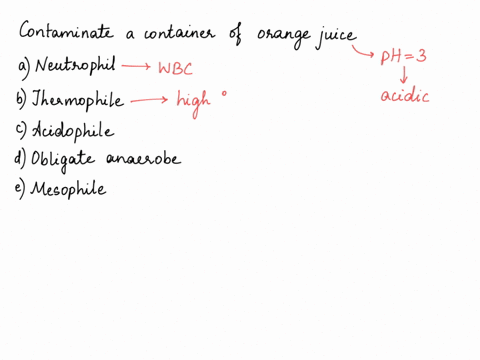 Contaminate a container of orange juice
→ pH = 3
a) Neutrophil → WBC
↓
b) Thermophile → high °
acidic
c) Acidophile
d) Obligate anaerobe
e) Mesophile